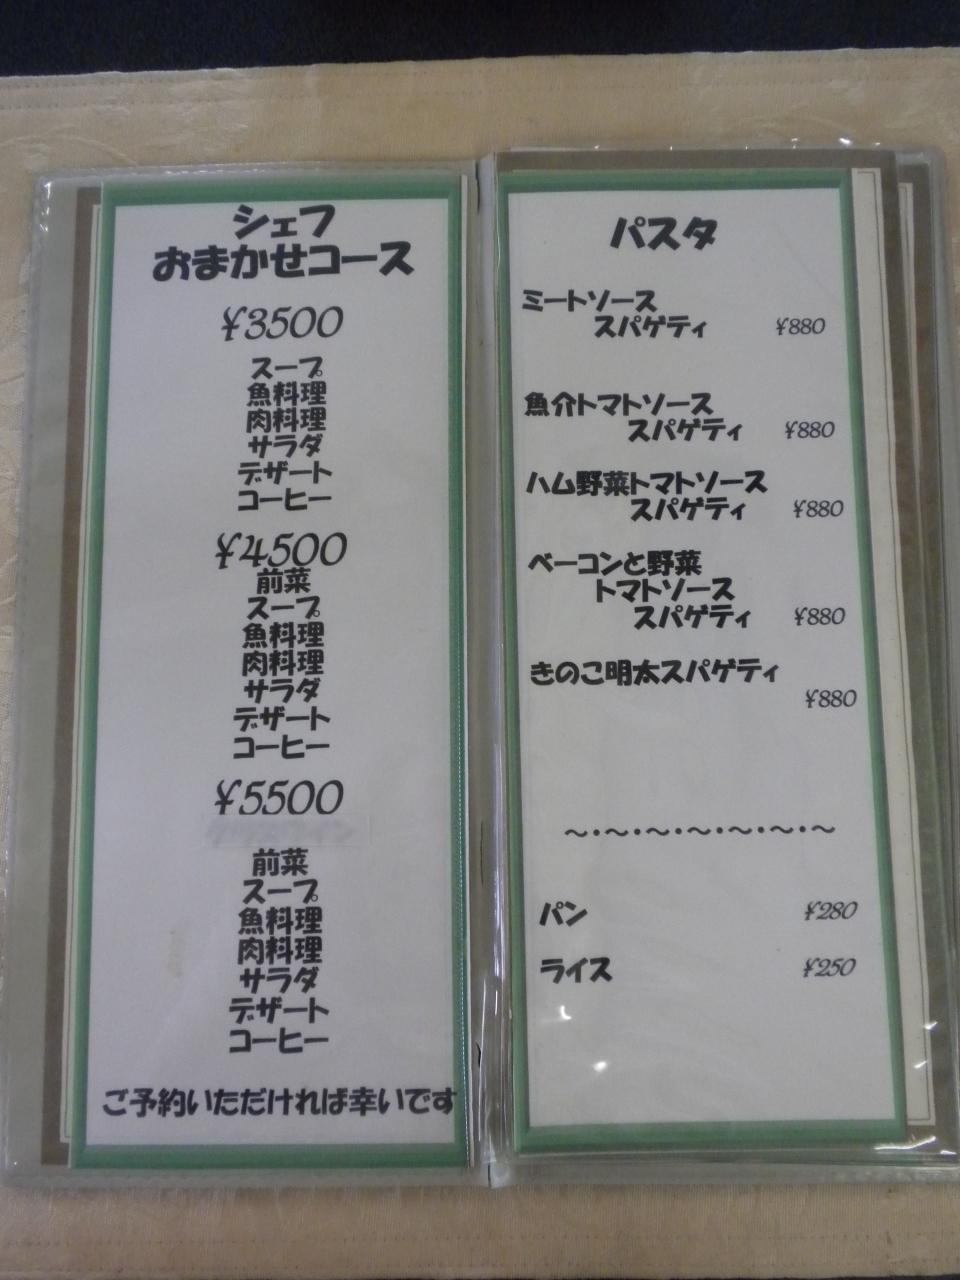 シェフ
おまかせコース
¥3500
スープ
魚料理
肉料理
サラダ
デザート
コーヒー
¥4500
前菜
スープ
魚料理
肉料理
サラダ
デザート
コーヒー
¥5500
前菜
スープ
魚料理
肉料理
サラダ
デザート
コーヒー
ご予約いただければ幸いです
パスタ
ミートソース
スパゲティ ¥880
魚介トマトソース
スパゲティ ¥880
ハム野菜トマトソース
スパゲティ ¥880
ベーコンと野菜
トマトソース
スパゲティ ¥880
きのこ明太スパゲティ
¥880
~・~・~・~・~・~・~
パン ¥280
ライス ¥250